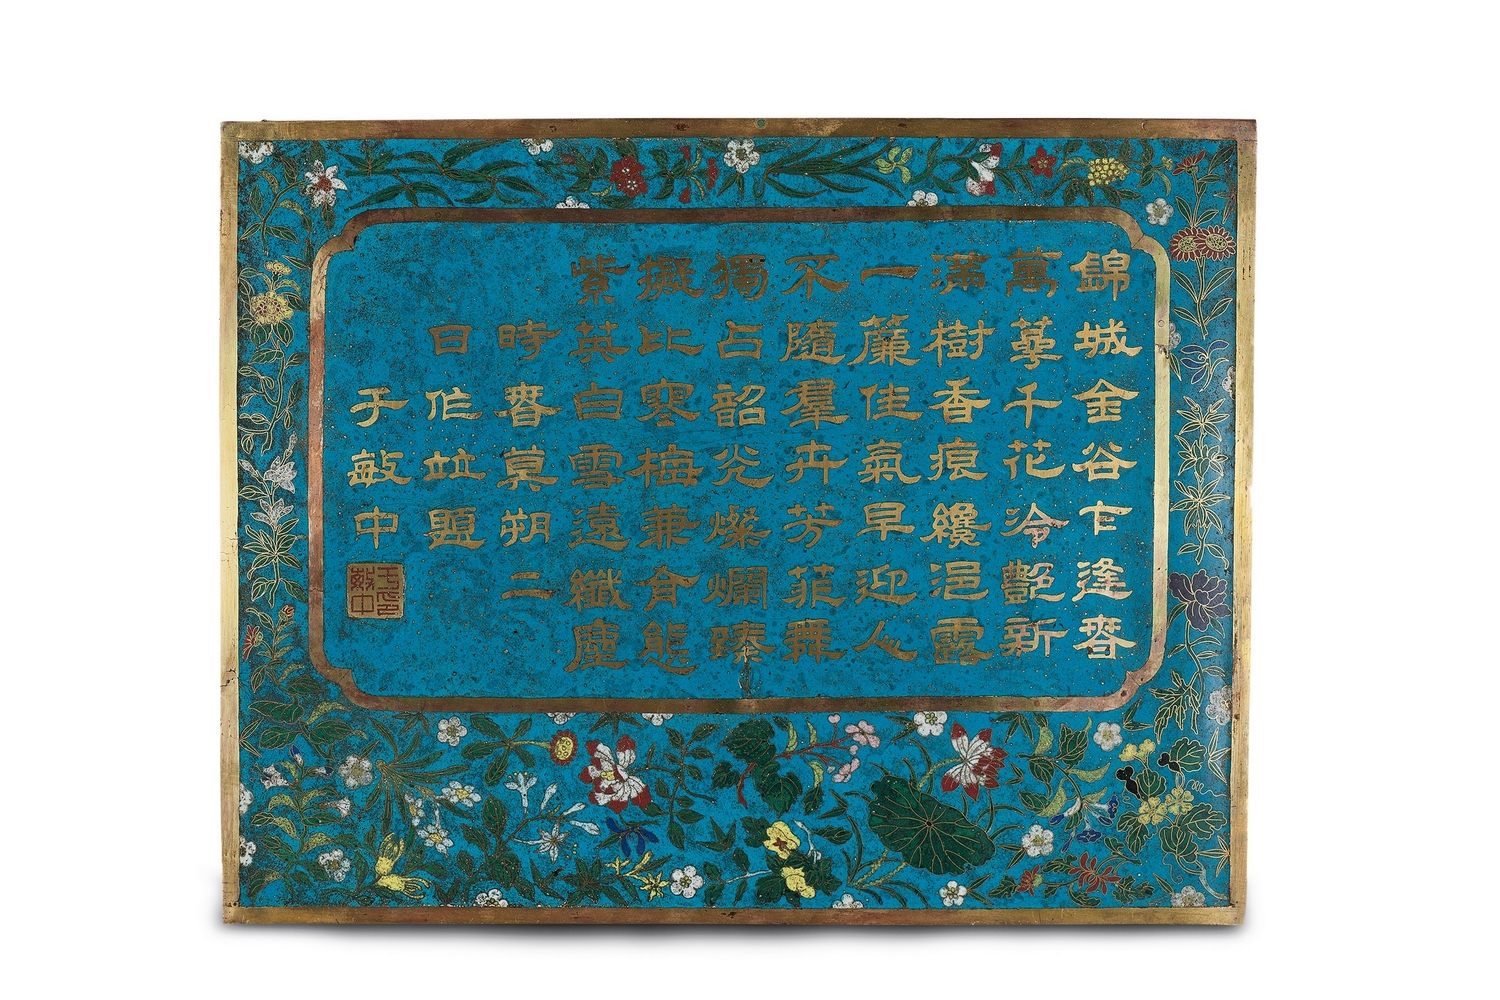 錦城金谷乍逢春
萬萼千花冷艷新
滿樹香痕纔浥露
一簾佳氣早迎人
不隨羣卉芳菲舞
獨占韶光燦爛臻
擬比寒梅兼有態
紫英白雪遠纖塵
時春莫朔二
日作竝題
于敏中